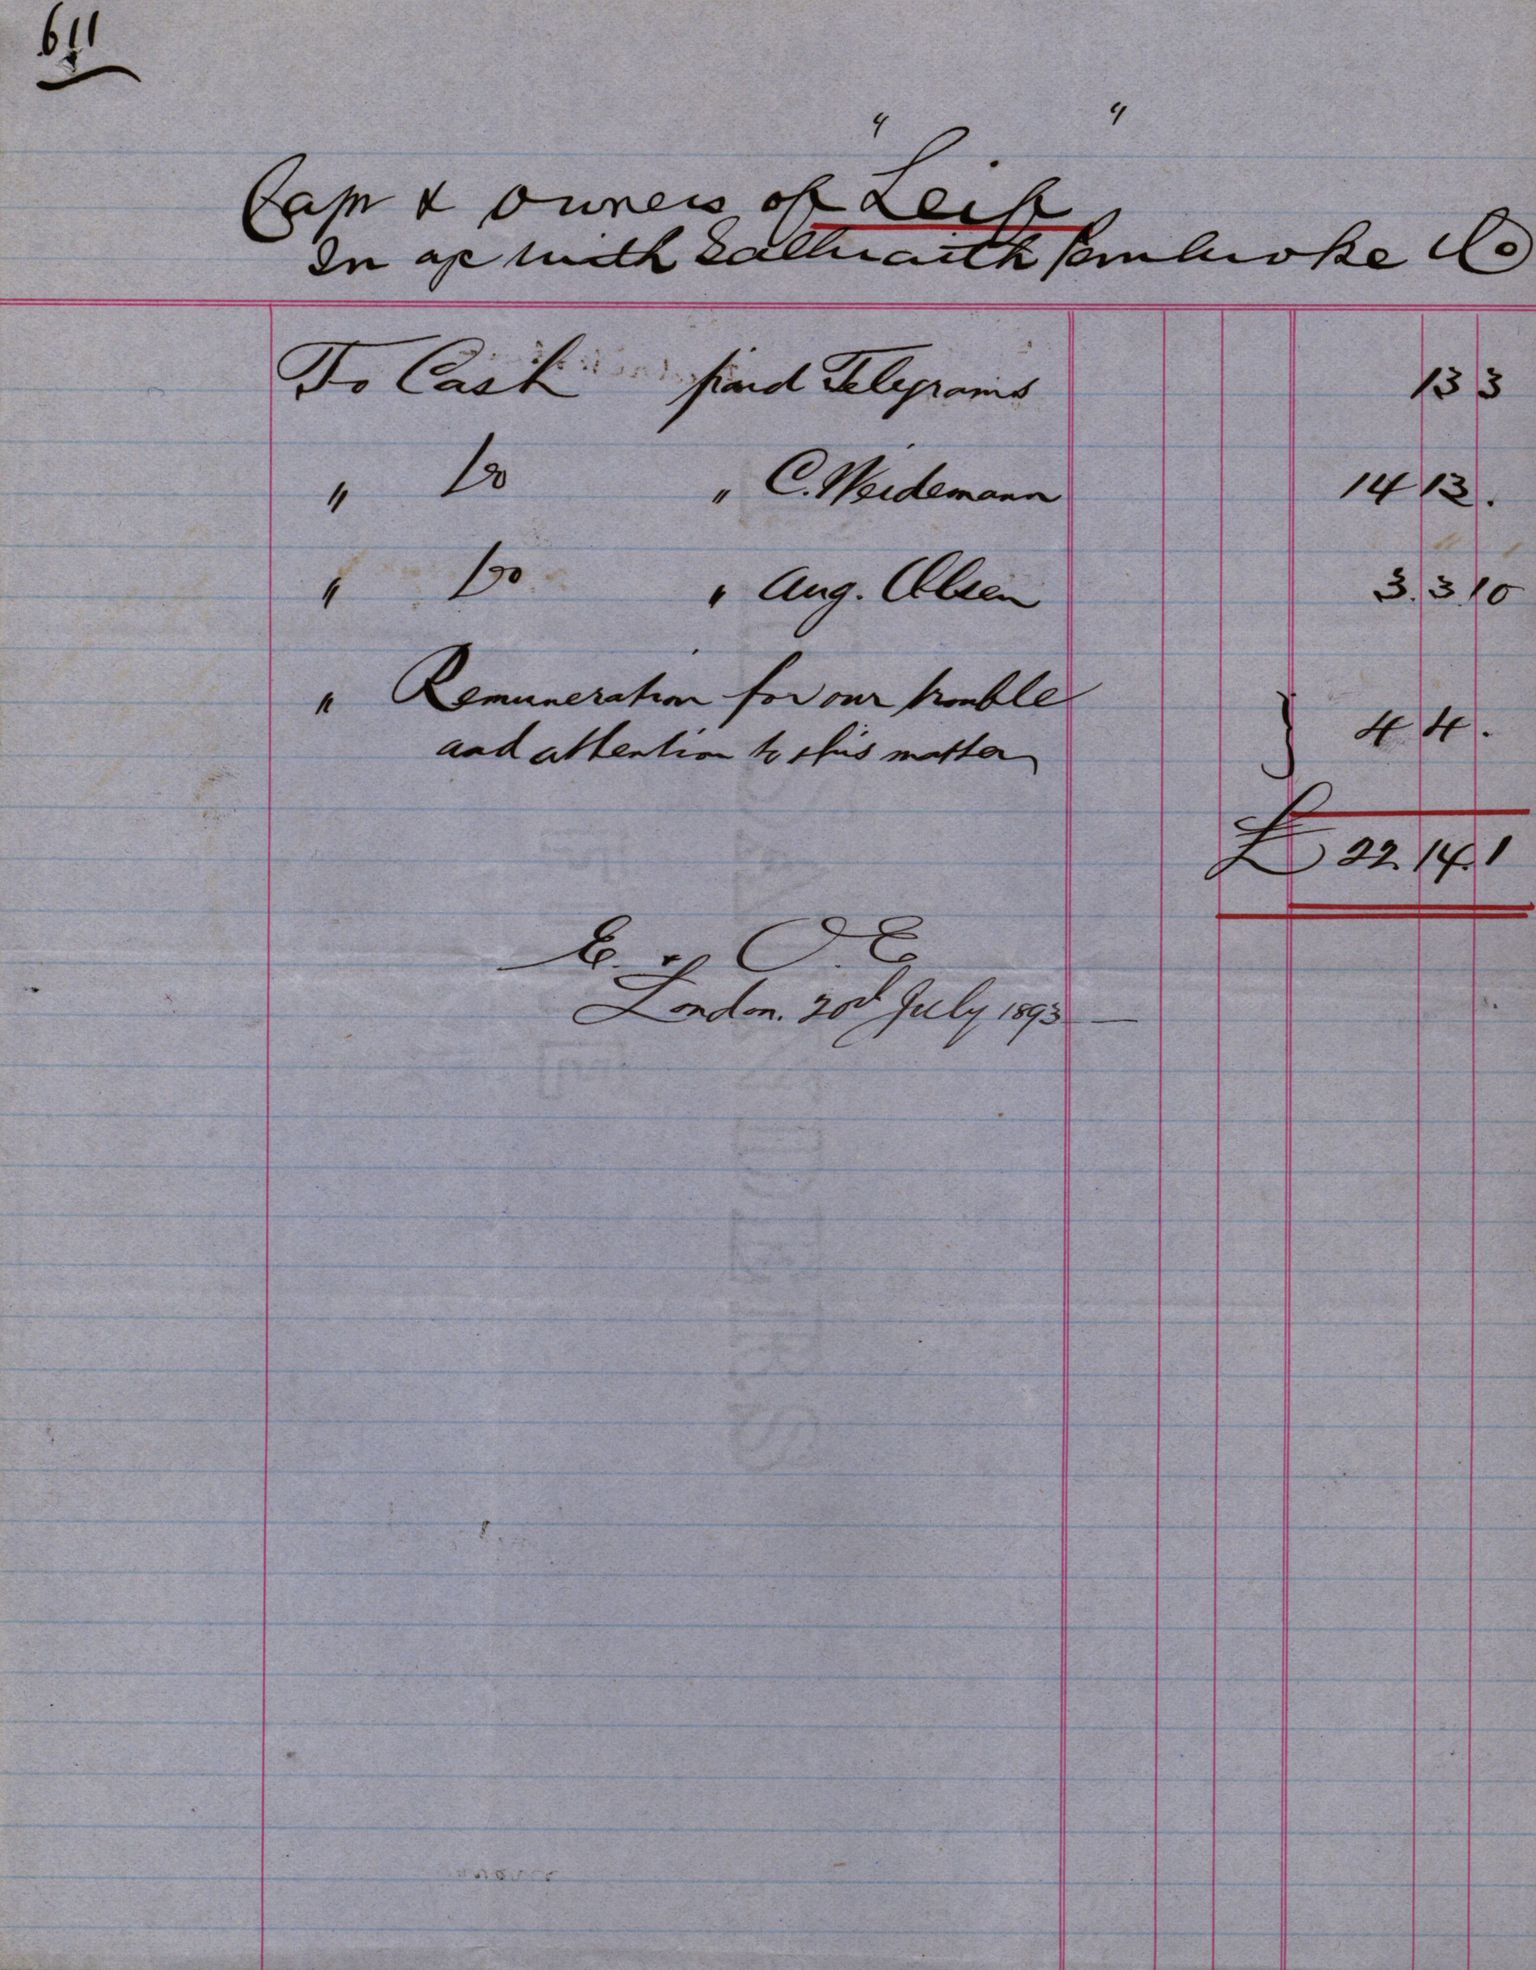 611
Capt & Owners of "Leif"
In a/c with Galbraith Pembroke & Co
To Cash paid Telegrams 13 3
" Do " C. Weidemann 14 13 .
" Do " Aug. Olsen 3. 3. 10
" Remuneration for our trouble
and attention to this matter } 4 4 .
£ 22. 14. 1
E. & O. E
London. 20th July 1893